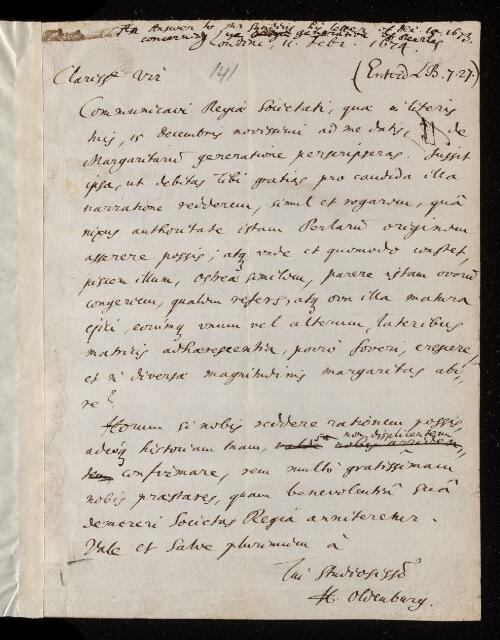 An Answer to Mr Sandius his letter of Dec. 15. 1673.
concerning ye generation of Pearles
Londini, 11. Febr. 1674.
Clariss.e Vir 141 (Enterd LB. 7. 27.)
Communicavi Regiæ Societati, quæ in literis
tuis, 15 decembris novissimi ad me datis, de
Margaritarum generatione perscripseras. Jussit
ipsa, ut debitas tibi gratias pro candida illa
narratione redderem, simul et rogarem, quâ
nixus authoritate istam Perlarum originem
asserere possis; atq vnde et quomodo constet,
piscem illum, Ostreæ similem, parere istam ovorum
congeriem, qualem refers, atq ova illa matura
ejici, eorumq vnum vel alterum, lateribus
matricis adhærescentia, porrò foveri, crescere,
et in diversæ magnitudinis margaritas abi-
re?
Horum si nobis reddere rationem possis,
adeoq historiam tuam, non displicentem,
confirmare, rem multò gratissimam
nobis præstares, quam benevolentiâ suâ
demereri Societas Regia anniteretur.
Vale et Salve plurimum à
Tui Studiosissō
H. Oldenburg.